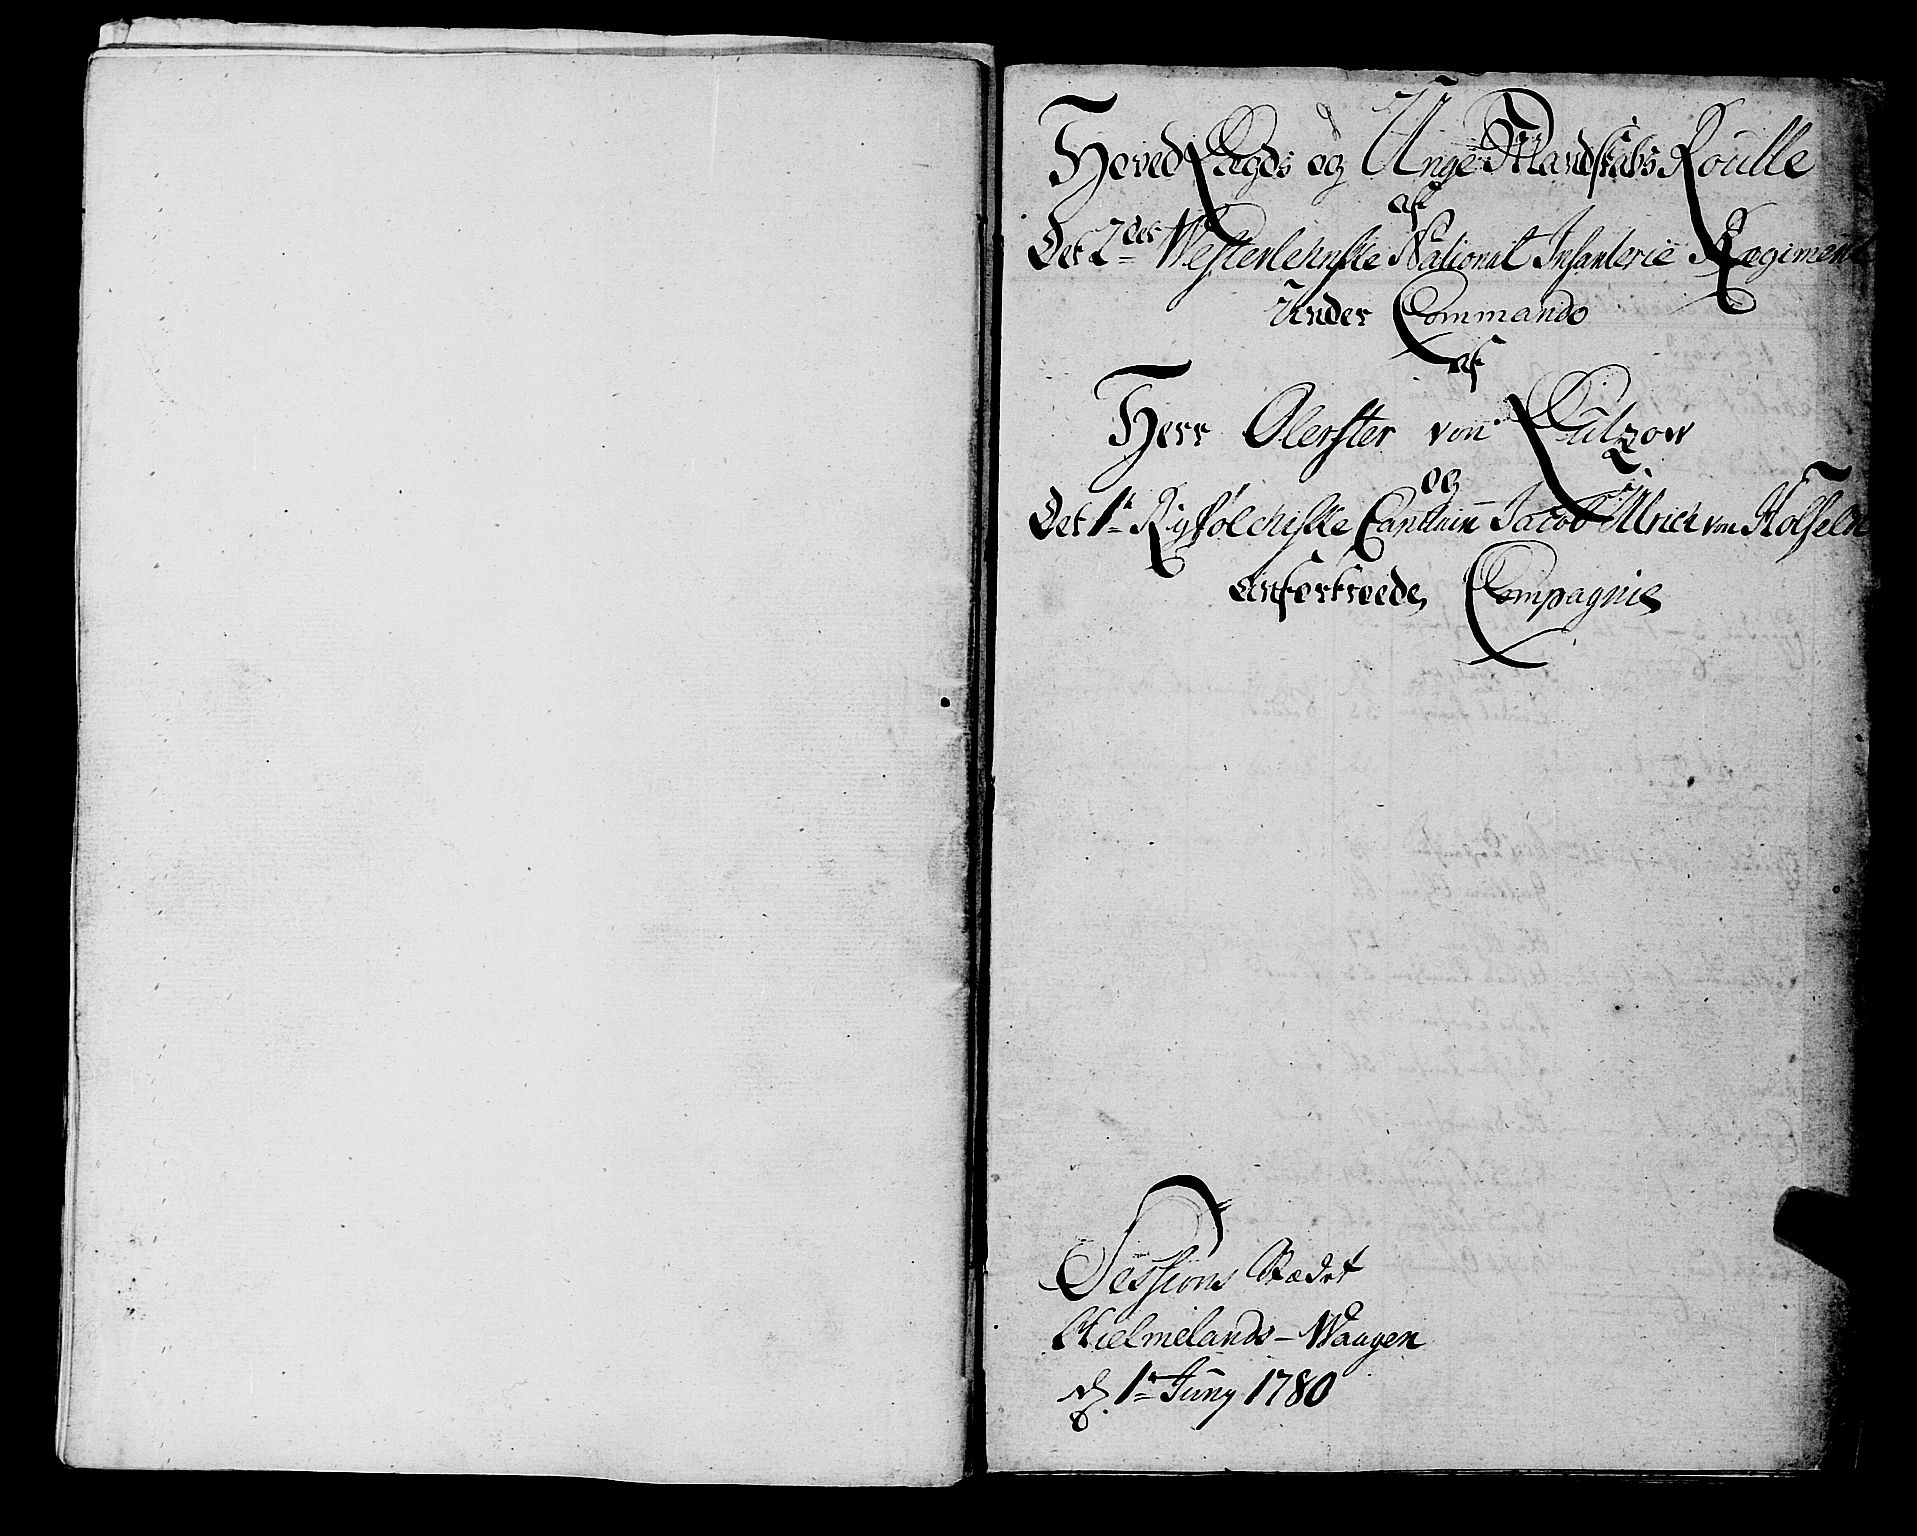 Hoved Lægds og Unge Mandskabs Roulle
af
Det 2det Westerlehnske National Infanterie Regiment
Under Commando
af
Herr Oberster von Lützow
og
Det 1te Ryfølchiske Capitain Jacob Ulrich von Holfeldt
Anfortroede Compagnie
Sessions Stædet
Hielmelands-Waagen
d. 1te Juny 1780